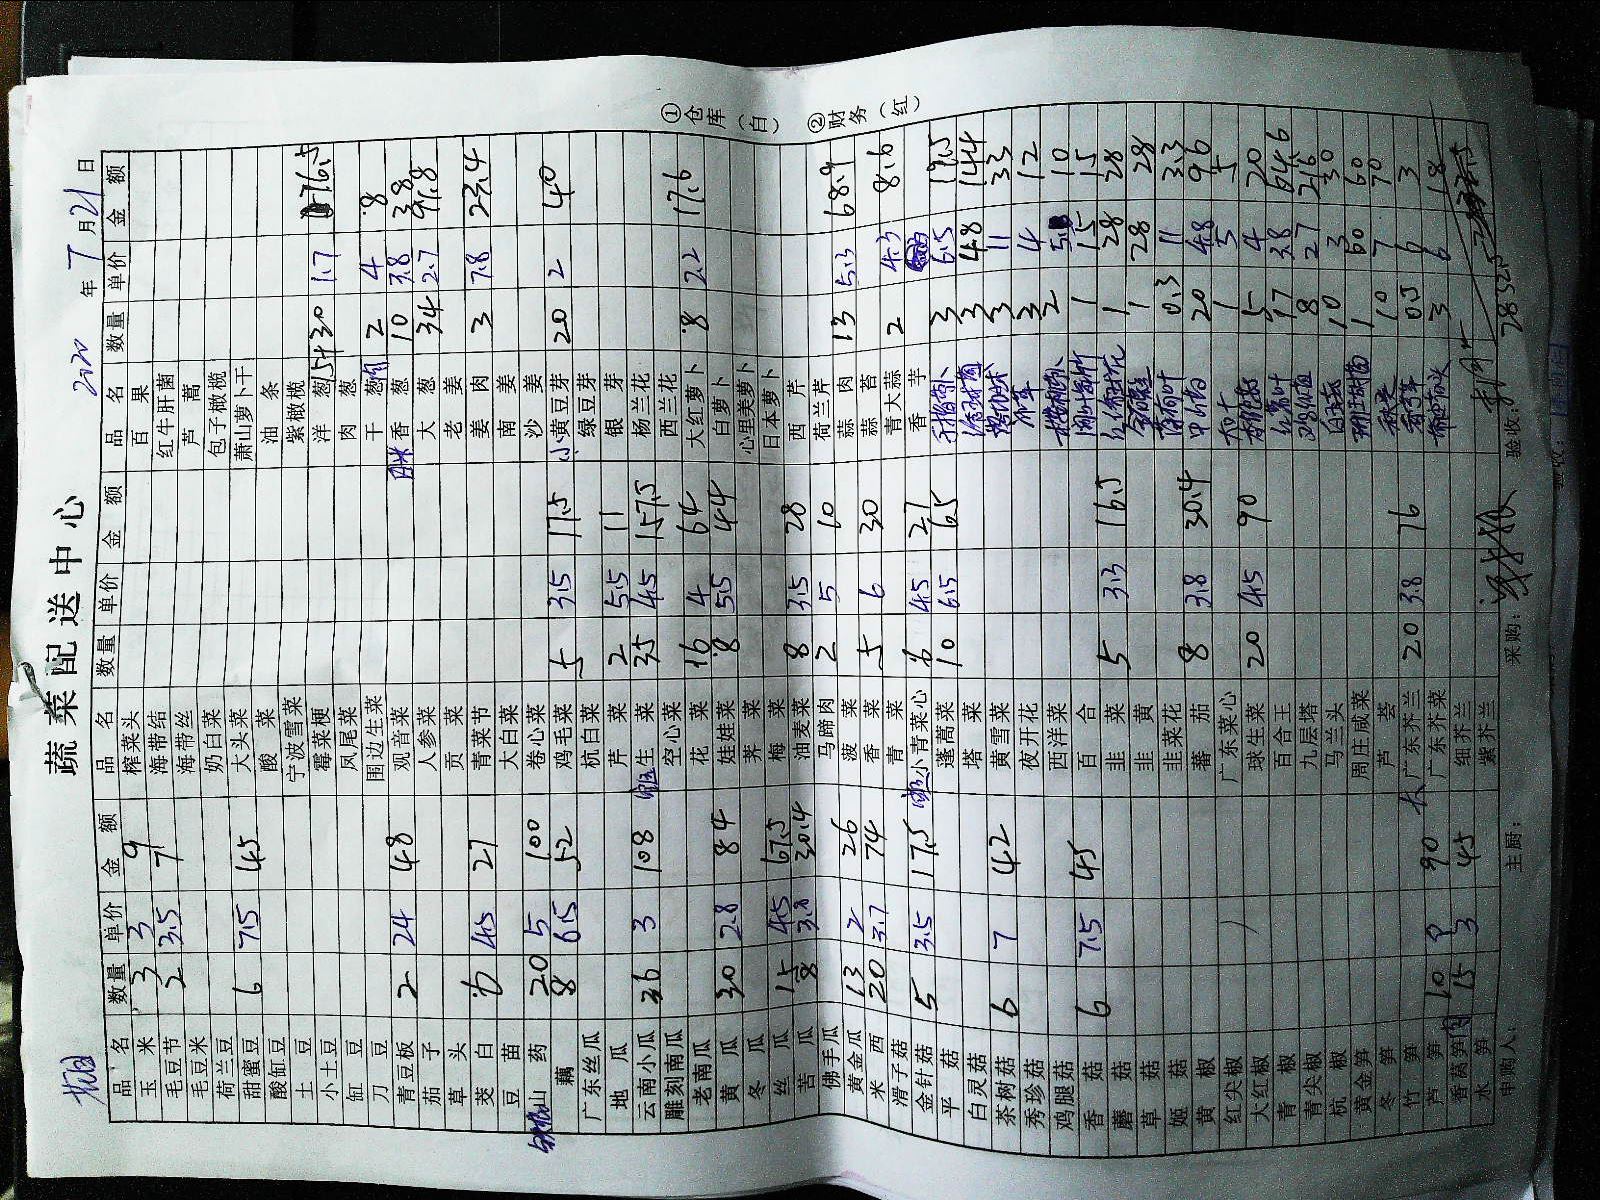 蔬菜配送中心
2020 年 7 月 21 日
品名 数量 单价 金额 品名 数量 单价 金额 品名 数量 单价 金额
玉米 3 3 9 榨菜头 百果
毛豆节 2 3.5 7 海带结 红牛肝菌
毛豆米 海带丝 芦蒿
荷兰豆 奶白菜 包子橄榄
甜蜜豆 6 7.5 45 大头菜 萧山萝卜干
酸缸豆 酸菜 油条
土豆 宁波雪菜 紫橄榄
小土豆 霉菜梗 洋葱 1.7 76.5
缸豆 凤尾菜 肉葱
刀豆 围边生菜 干葱 2 4 8
青豆板 2 24 48 观音菜 香葱 10 3.8 38
茄子 人参菜 大葱 34 2.7 91.8
草头 贡菜 老姜
茭白 6 4.5 27 青菜节 姜肉 3 7.8 23.4
豆苗 大白菜 南姜
山药 20 5 100 卷心菜 沙姜
藕 8 6.5 52 鸡毛菜 5 3.5 17.5 小黄豆芽 20 2 40
广东丝瓜 杭白菜 绿豆芽
地瓜 芹菜 2 5.5 11 银芽
云南小瓜 36 3 108 生菜 35 4.5 157.5 杨兰花
雕刻南瓜 空心菜 西兰花
老南瓜 花菜 16 4 64 大红萝卜 8 2.2 17.6
黄瓜 30 2.8 84 娃娃菜 8 5.5 44 白萝卜
冬瓜 荠菜 心里美萝卜
丝瓜 15 4.5 67.5 梅菜 日本萝卜
苦瓜 8 3.8 30.4 油麦菜 8 3.5 28 西芹
佛手瓜 马蹄肉 2 5 10 荷兰芹
黄金瓜 13 2 26 菠菜 蒜肉 13 5.3 68.9
米西 20 3.7 74 香菜 5 6 30 蒜苔
滑子菇 青菜 青大蒜 2 4.3 8.6
金针菇 5 3.5 17.5 小青菜心 6 4.5 27 香芋
平菇 蓬蒿菜 10 6.5 65 3 6.5 19.5
白灵菇 塔菜 3 48 144
茶树菇 6 7 42 黄雪菜 3 11 33
秀珍菇 夜开花 3 4 12
鸡腿菇 西洋菜 2 10
香菇 6 7.5 45 百合 1 15 15
蘑菇 韭菜 5 3.3 16.5 1 28 28
草菇 韭黄 1 28 28
姬菇 韭菜花 薄荷叶 0.3 11 3.3
黄椒 蕃茄 8 3.8 30.4 20 4.8 96
红尖椒 广东菜心 1 5 5
大红椒 球生菜 20 4.5 90 5 4 20
青椒 百合王 17 3.8 64.6
青尖椒 九层塔 8 2.7 21.6
杭椒 马兰头 10 3 30
黄金笋 周庄咸菜 1 60 60
冬笋 芦荟 秋葵 10 7 70
竹笋 大广东芥兰 20 3.8 76 香草 0.5 6 3
芦笋 10 9 90 广东芥菜 3 6 18
香莴笋肉 15 3 45 细芥兰
水笋 紫芥兰
申购人： 主厨： 采购： 验收： 2852.5
①仓库（白） ②财务（红）